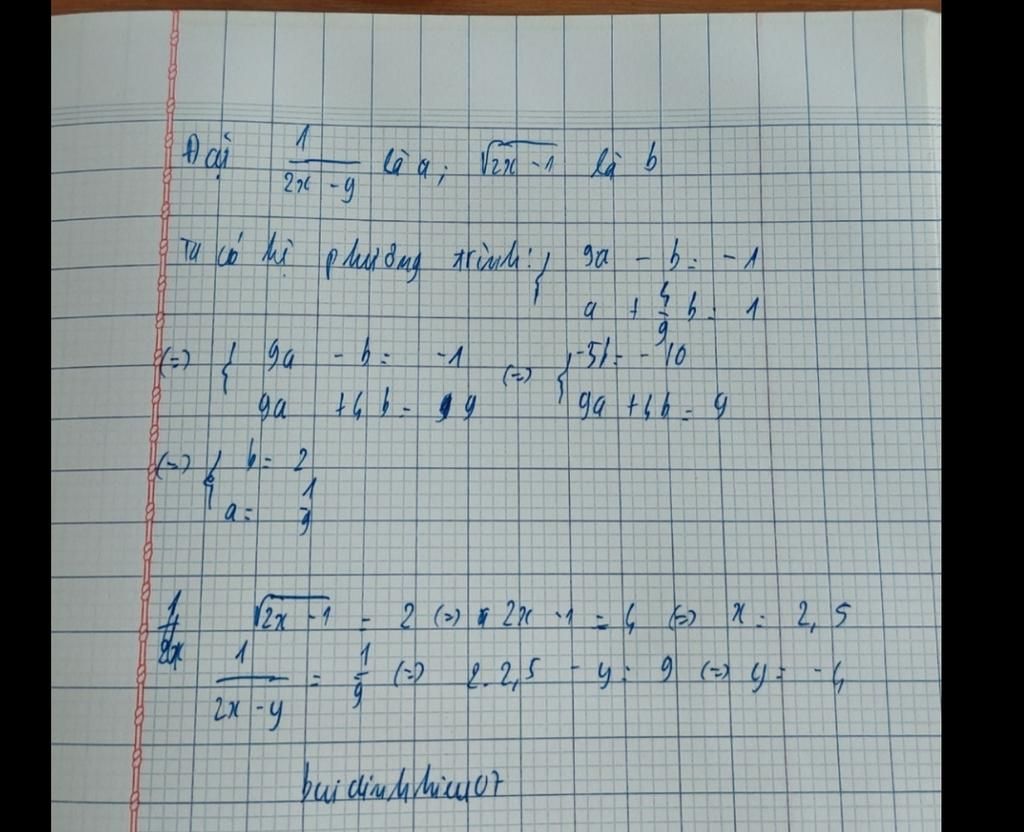 Đặt 1/(2x - y) là a; √(2x - 1) là b
Ta có hệ phương trình: { 9a - b = -1
a + 4/9 b = 1
(=) { 9a - b = -1 (=) { -5b = -10
9a + 4b = 9 9a + 4b = 9
(=) { b = 2
a = 1/9
√(2x - 1) = 2 (=) 2x - 1 = 4 (=) x = 2,5
1/(2x - y) = 1/9 (=) 2.2,5 - y = 9 (=) y = -4
buidinhhieu07